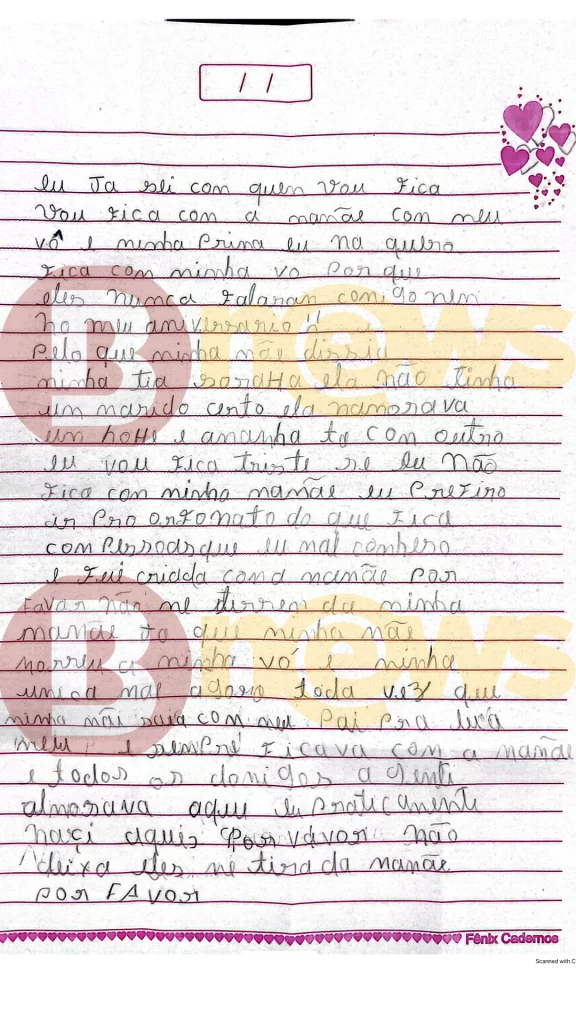 / /
eu Ja sei con quen vou Fica
Vou Fica con a mamãe con meu
vô e minha Prima eu na quero
Fica con minha vo Por que
eles nunca Falaran comigo nem
no meu aniversario!!
Pelo que minha mãe dissia
minha tia saraHa ela não tinha
um marido certo ela namorava
um hoHe e amanha ta con outro
eu vou Fica triste se eu não
Fica con minha mamãe eu PreFiro
ir Pro orFonato do que Fica
com Perssoas que eu mal conhero
e Fui criada con a mamãe Por
Favor não me tirrem da minha
mamãe ja que minha mãe
morreu a minha vó é minha
unica mãe agora toda vez que
minha mãi saia com meu Pai Pra luta
meu e sempre Ficava com a mamãe
e todos os domigos a genti
almosava aqui eu Praticamente
naçi aqui Por vavor não
deixa eles me tira da mamãe
POR FAVOR
Fênix Cadernos
Scanned with C
Bn@ws
Bn@ws